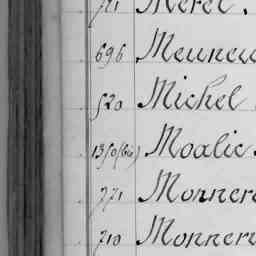 Merel.
696 Meuneu
520 Michel
Moalic
771 Monner
710 Monner